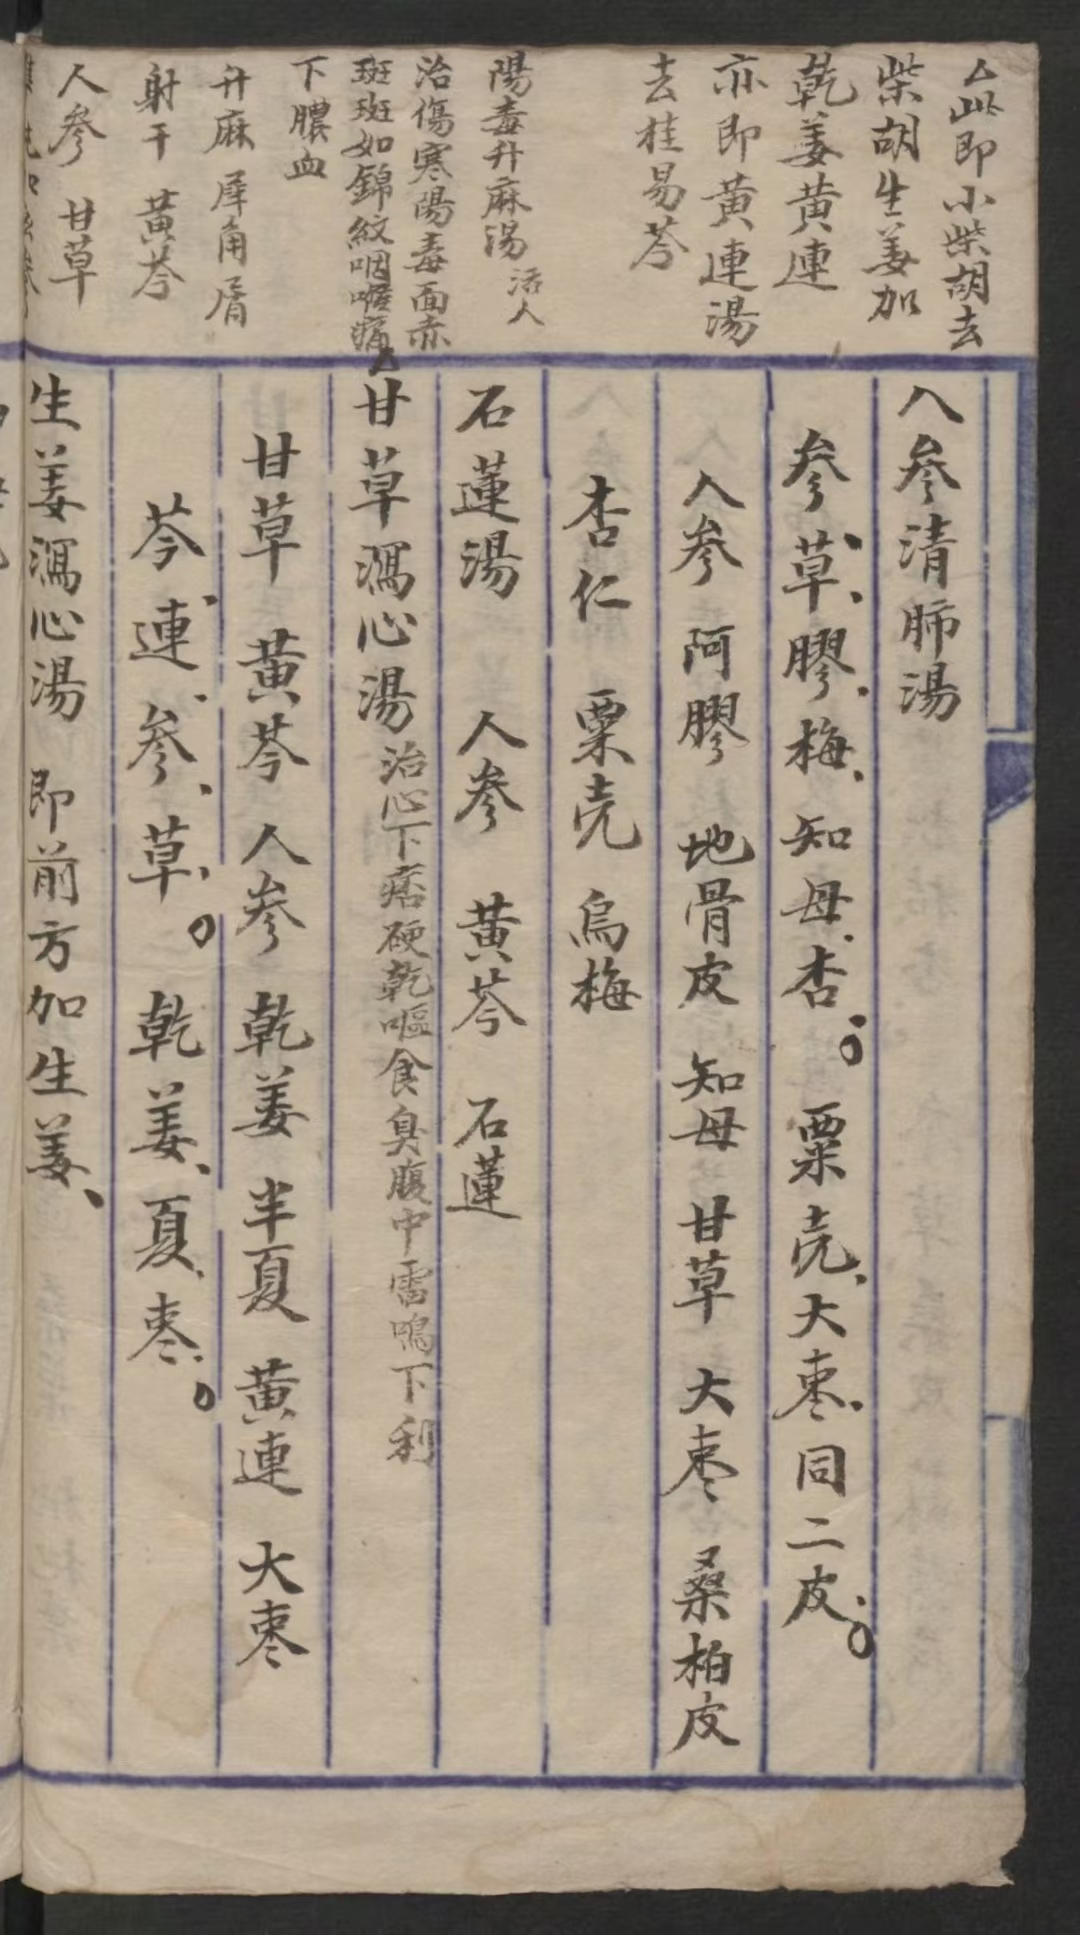 △此即小柴胡去
柴胡生姜加
乾姜黄連
亦即黄連湯
去桂易芩
陽毒升麻湯 活人
治傷寒陽毒面赤
斑斑如錦紋咽喉痛
下膿血
升麻 犀角屑
射干 黄芩
人參 甘草
人參清肺湯
參草、膠、梅、知母、杏。粟壳、大枣、同二皮。
人參 阿膠 地骨皮 知母 甘草 大枣 桑柏皮
杏仁 粟壳 烏梅
石蓮湯 人參 黄芩 石蓮
△甘草瀉心湯 治心下痞硬乾嘔食臭腹中雷鳴下利
甘草 黄芩 人參 乾姜 半夏 黄連 大枣
芩、連、參、草。乾姜、夏、枣。
生姜瀉心湯 即前方加生姜、